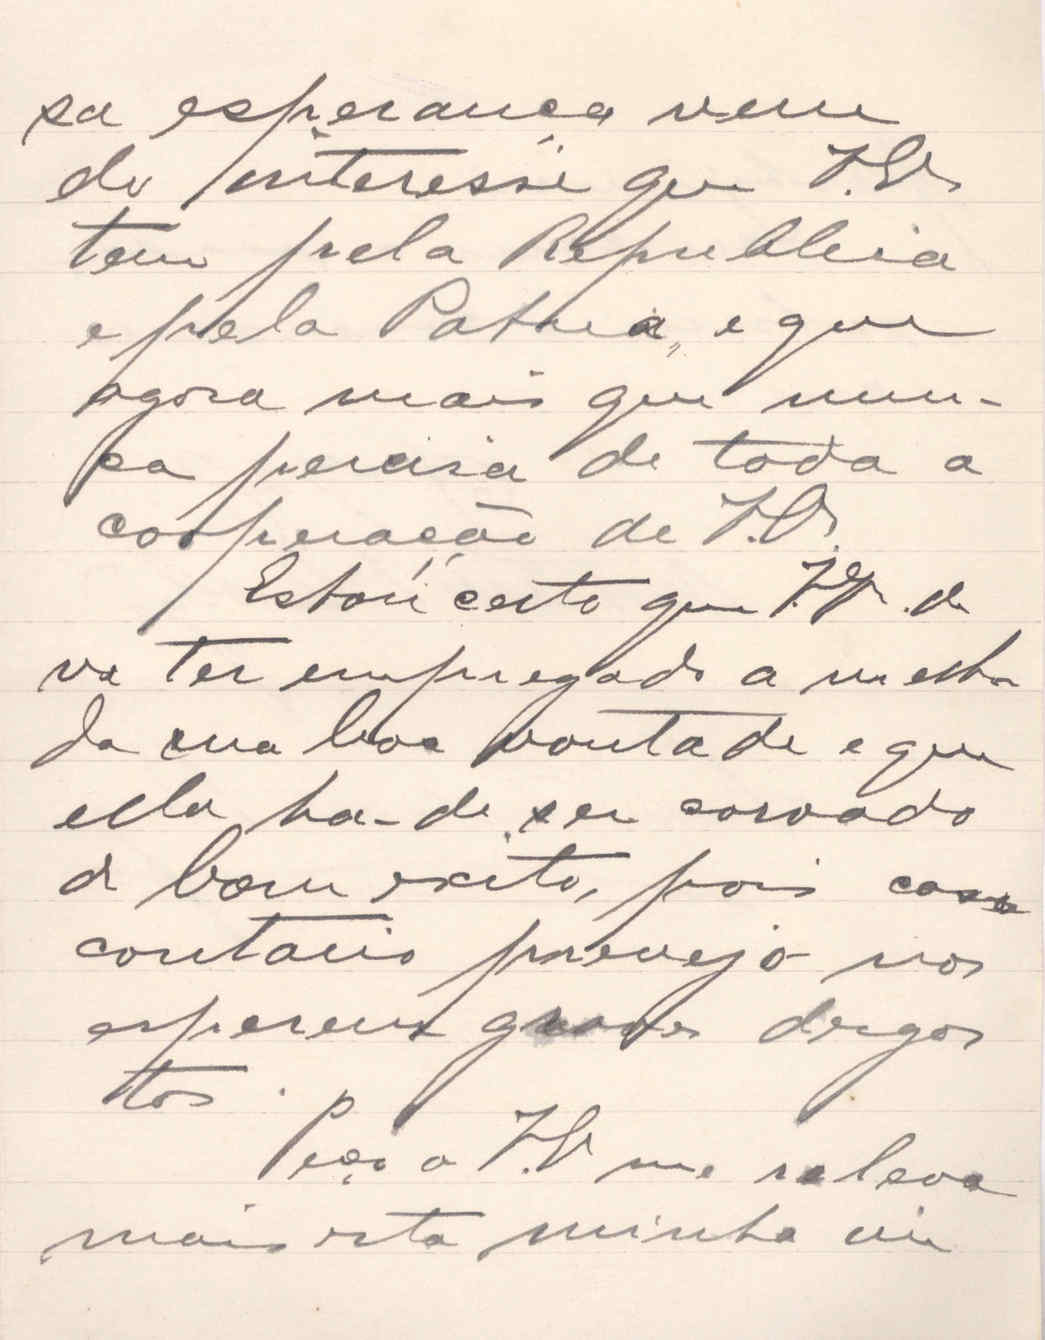 sa esperança vem
do interesse que V. Ex.
tem pela Republica
e pela Patria, e que
agora mais que nun-
ca percisa de toda a
cooperação de V. Ex.
Estou certo que V. Ex. de
ve ter empregado a melhor
da sua boa vontade e que
ella ha-de ser coroado
de bom exito, pois caso
contario prevejo nos
esperem graves desgos
tos.
Peço a V. Ex. me releva
mais esta minha